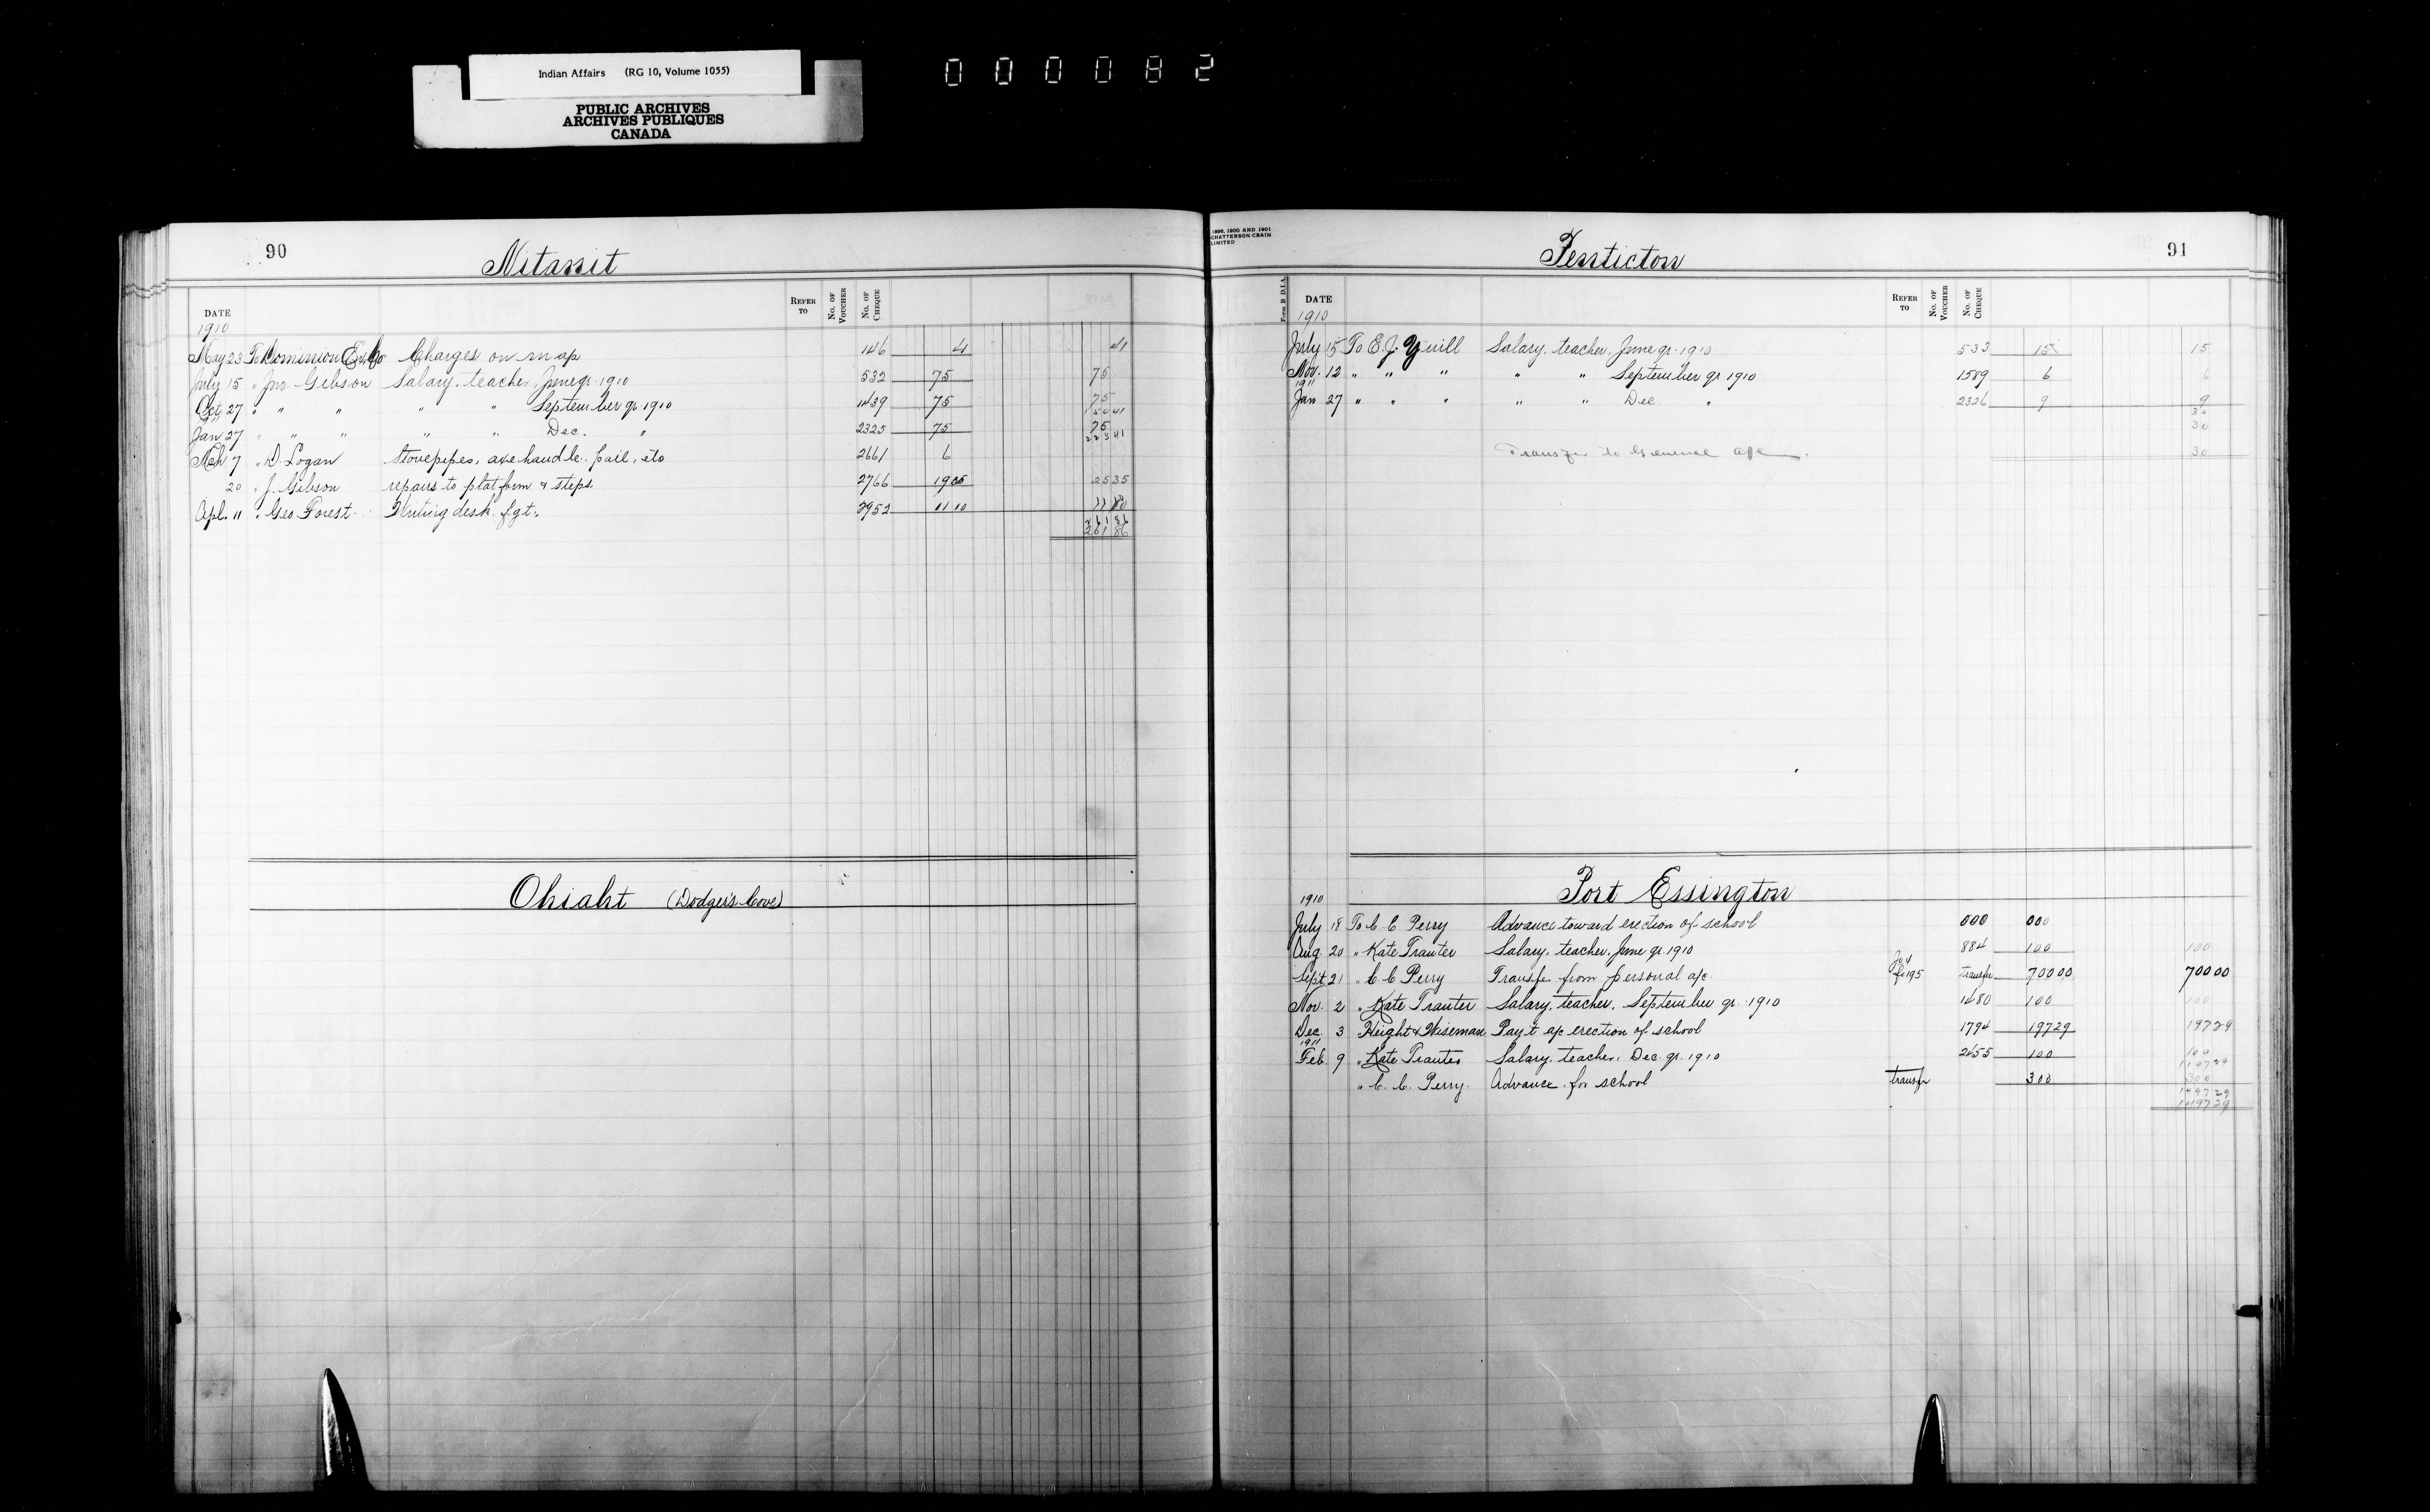 Indian Affairs (RG 10, Volume 1055)
PUBLIC ARCHIVES
ARCHIVES PUBLIQUES
CANADA
000082
90
Nitanit
DATE REFER TO No. OF VOUCHER No. OF CHEQUE
1910
May 23 To Dominion Ex Co Charges on map 146 41 41
July 15 " Jno. Gibson Salary, teacher, June qr. 1910 532 75 75
Oct 27 " " " " " September qr. 1910 1439 75 75
150 41
1911
Jan 27 " " " " " Dec. " 2325 75 75
225 41
Mch 7 " D. Logan Stovepipes, axe handle, pail, etc 2661 6
20 " J. Gibson repairs to platform & steps 2766 19 05 25 35
Apl. 11 " Geo Forest Writing desk fgt. 2952 11 10 11 10
261 86
261 86
Ohiaht (Dodger's Cove)
1896, 1900 AND 1901
CHATTERSON-CRAIN
LIMITED
Penticton
91
Form B D.I.A.
DATE REFER TO No. OF VOUCHER No. OF CHEQUE
1910
July 15 To E. J. Yuill Salary, teacher, June qr. 1910 533 15 15
Nov. 12 " " " " " September qr 1910 1589 6 6
1911
Jan 27 " " " " " Dec. " 2326 9 9
30
30
Transfer to General a/c 30
Port Essington
1910
July 18 To C. C. Perry Advance toward erection of school 000 000
Aug. 20 " Kate Tranter Salary, teacher, June qr. 1910 884 100 100
Sept 21 " C. C. Perry Transfer from personal a/c. fo 195 transfer 700 00 700 00
Nov. 2 " Kate Tranter Salary, teacher, September qr. 1910 1480 100 100
Dec. 3 Height & Wiseman Pay't a/c erection of school 1794 197 29 197 29
1911
Feb. 9 " Kate Tranter Salary, teacher, Dec. qr. 1910 2455 100 100
1197 29
" C. C. Perry. Advance for school transfer 300 300
1497 29
1497 29